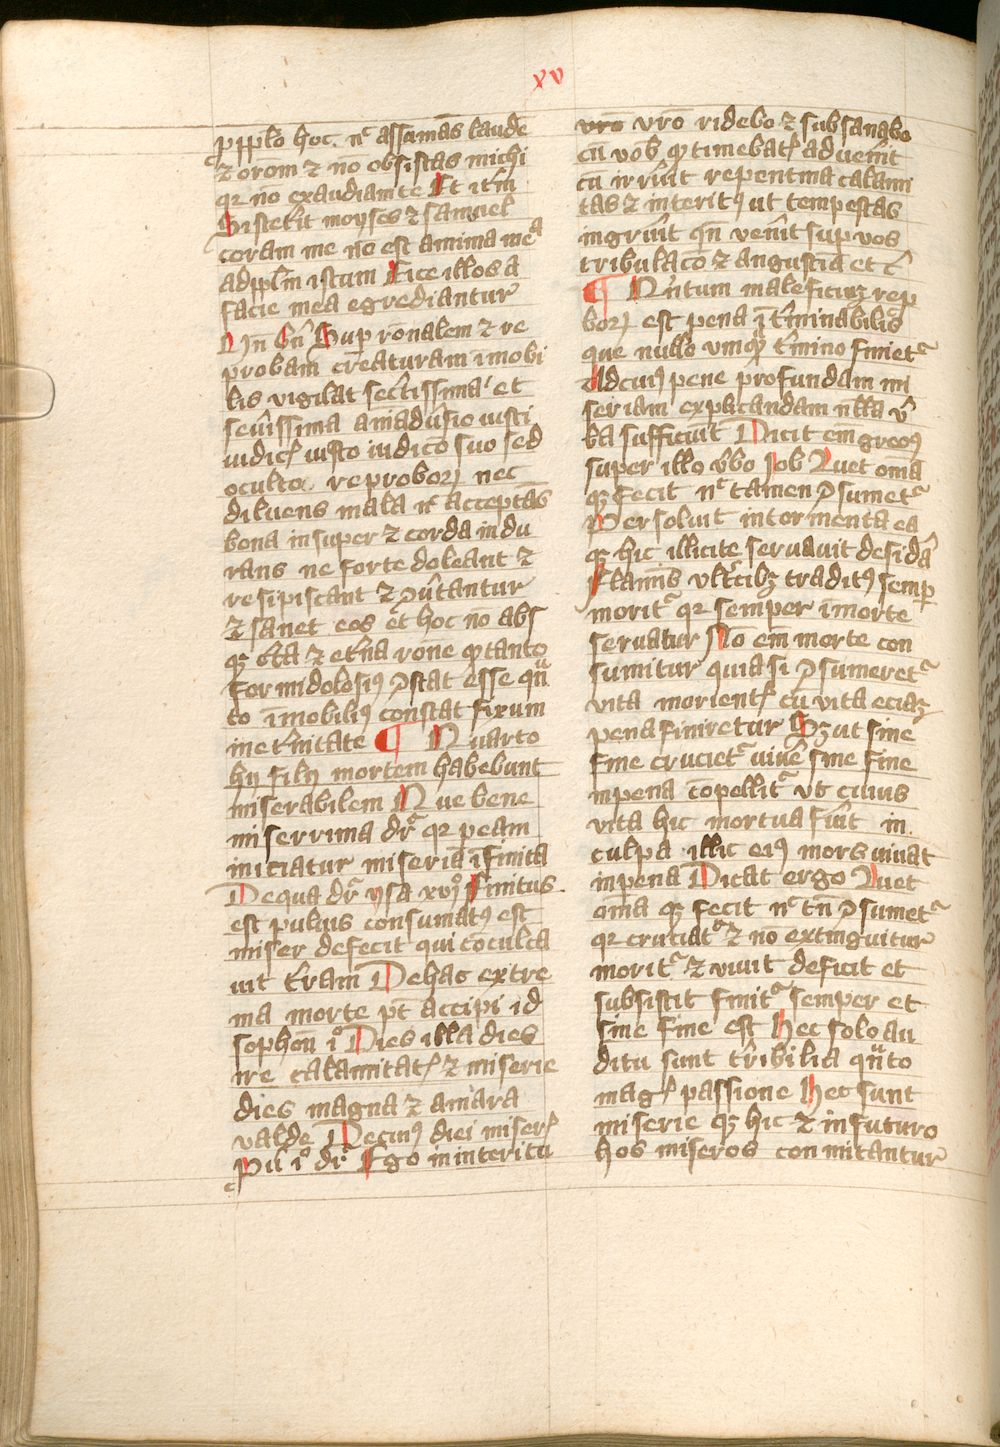 xv
ppplo hoc. nͨ assumās laudē
⁊ orōm ⁊ nō obsistas michi
qꝛ nō exaudiam te Et itm̄
Si stetīt moyses ⁊ samuel
coram me nō est anima meᵃ
ad pplm̄ istum Eice illos a
facie mea egrediantur
Nn̄ bn̄ Sup rōnalem ⁊ re
probam creaturam īmobi
lis vigilat sectissima et
sevissima aīaduīsio iusti
iudicꝭ iusto iudico suo sed
oculto reproboꝝ nec
diluens mala nͨ acceptās
bona insuper ⁊ corda indu
rans ne forte doleant ⁊
resipiscant ⁊ ꝯūtantur
⁊ sanet eos et hoc nō absꝗ
cta ⁊ etna rōne qͣ tanto
formidolosiꝰ ꝯstat esse quͣ
to īmobiliꝰ constat fixum
in etnitate ¶ Quarto
hij filij mortem habebunt
miserabilem Que bene
miserrima drͬ qꝛ p eam
iniciatur miseria īfinita
De qua drͬ ysa xvjͦ Finitus
est puluis consumatꝰ est
miser defecit qui cōculca
uit tram De hac extre
ma morte pt̄ accipi id
sophoń iͦ Dies illa dies
ire calamitatꝭ ⁊ miserie
dies magna ⁊ amara
valde De cuiꝰ diei miserꝭ
Pu iͦ drͬ Ego in interitu
vrō ridebo ⁊ subsanabo
cū vob̄ qͩ timebatꝭ advenīt
cū irrūit repentina calami
tas ⁊ interitꝰ ut tempestas
ingrūit qn̄ venīt sup vos
tribulaco ⁊ angustia et cͨ
¶ Nn̄tum maleficiuꝫ rep
boꝝ est pena ītminabilis
que nullo vmqͣ tmino finietͬ
Ad cuiꝰ pene profundam mi
seriam explicandam nlla v̄
ba sufficiūt Dicit em̄ greoꝰ
super illo v̄bo Job Luet om̄a
qꝫ fecit nͨ tamen ꝯsumetͬ
Persoluit in tormenta ea
qꝫ hic illicite servavit desidᵃ
Flam̄is vltͥcibꝫ traditꝰ semꝑ
moritͬ qꝛ semper ī morte
servatur Nō em̄ morte con
sumitur quia si ꝯsumeretͬ
vita morientꝭ cū vita eciaꝫ
pena finiretur Sꝫ ut sine
fine crucietͬ viuē sine fine
in pena cōpellitͬ ut cuius
vita hic mortua fūit in
culpa illic eiꝰ mors uiuat
in pena Dicat ergo Luet
om̄a qꝫ fecit nͨ tn̄ ꝯsumetͬ
qꝛ cruciatͬ ⁊ nō extinguitur
moritͬ ⁊ vivit deficit et
subsistit finitͬ semper et
sine fine est Hec solo au
ditu sunt tr̄ibilia quͣto
magꝭ passione Hec sunt
miserie qꝫ hic ⁊ in futuro
hos miseros conmitantur